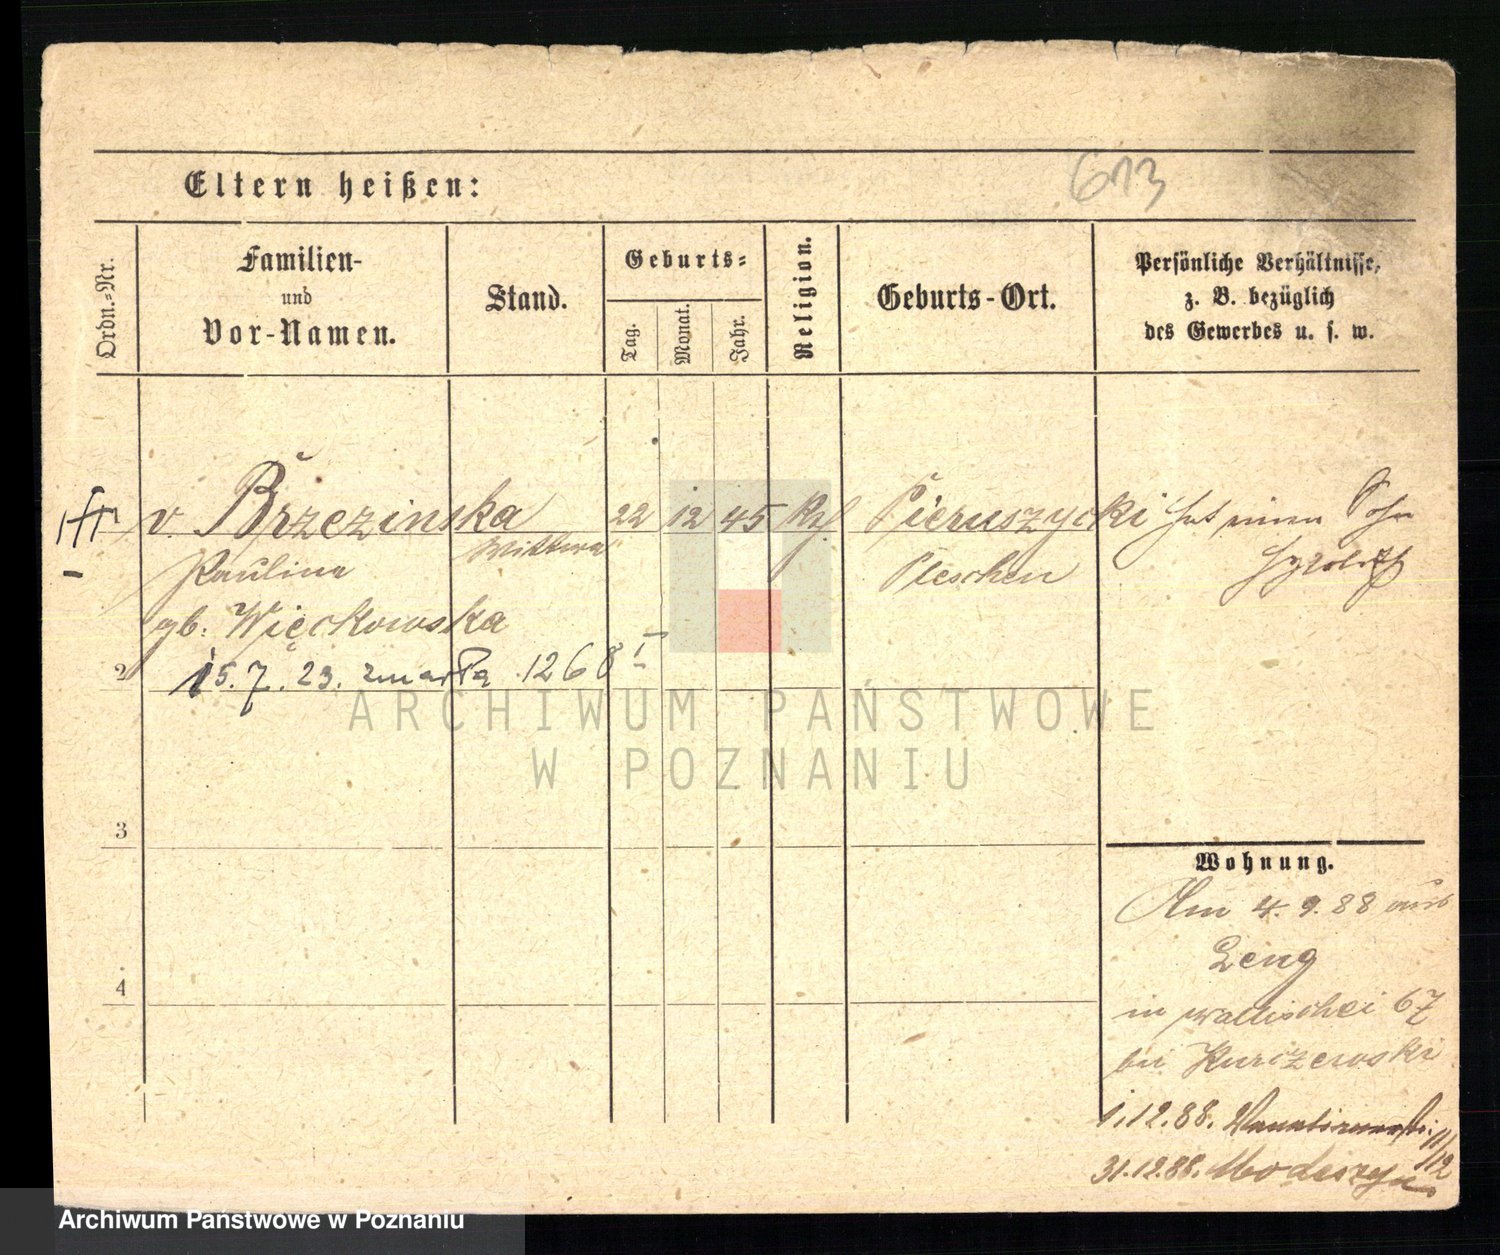 613
Eltern heißen:
Ordn.-Nr.
Familien-
und
Vor-Namen.
Stand.
Geburts-
Tag.
Monat.
Jahr.
Religion.
Geburts-Ort.
Persönliche Verhältnisse,
z. B. bezüglich
des Gewerbes u. s. w.
v. Brzezinska 22 12 45 Pieruszycki hat einen Sohn
Wittwe
Paulina Pleschen
gb. Więckowska
2 15. 7. 23. zmarła 1268 I
ARCHIWUM PAŃSTWOWE
W POZNANIU
3
Wohnung.
Am 4. 9. 88 aus
4
in Wallischei 67
bei Kurczewski
1.12.88.
31.12.88.
Archiwum Państwowe w Poznaniu